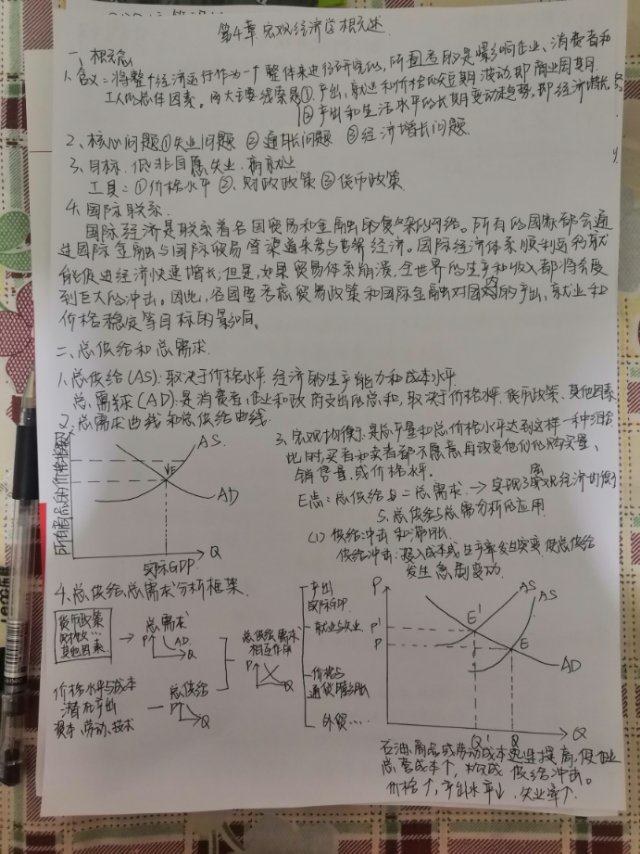 第4章 宏观经济学概述
一、概念
1.含义：将整个经济运行作为一个整体来进行研究的，所图考的是影响企业、消费者和
工人的总体因素。两大主要线索是①产出、就业和价格的短期波动即商业周期
②产出和生活水平的长期变动趋势，即经济增长
2、核心问题①失业问题 ②通胀问题 ③经济增长问题
3、目标：低非自愿失业、高就业
工具：①价格水平 ②、财政政策 ③货币政策
4.国际联系
国际经济是联系着各国贸易和金融的复杂的网络。所有的国家都会通
过国际金融与国际贸易等渠道来参与世界经济。国际经济体系顺利运行就
能促进经济快速增长，但是，如果贸易体系崩溃，全世界的生产和收入都将会受
到巨大的冲击。因此，各国要考虑贸易政策和国际金融对国内的产出、就业和
价格稳定等目标的影响。
二、总供给和总需求
1.总供给(AS)：取决于价格水平、经济的生产能力和成本水平
总需求(AD)：是消费者、企业和政府支出的总和，取决于价格水平、货币政策、其他因素
2.总需求曲线和总供给曲线
所有商品的价格指数
AS
E
AD
Q
实际GDP
3、宏观均衡：是总产量和总价格水平达到这样一种组合
此时买者和卖者都不愿意再改变他们的购买量、
销售量或价格水平。
E点：总供给与=总需求 → 实现了宏观经济均衡
5、总供给与总需求分析的应用
(1) 供给冲击和滞胀
供给冲击：投入成本或生产率发生突变，使总供给
发生急剧变动
4、总供给总需求分析框架
货币政策
财政…
其他因素
总需求
P
AD
Q
价格水平与成本
潜在产出
资本、劳动、技术
总供给
P
Q
总供给需求
相互作用
P
Q
产出
实际GDP
就业与失业
价格与
通货膨胀
外贸……
P
AS'
AS
E'
P'
P
E
AD
Q'
Q
Q
石油、商品或劳动成本迅速提高，使企业
总营成本↑，构成供给冲击。
价格↑，产出水平↓，失业率↑